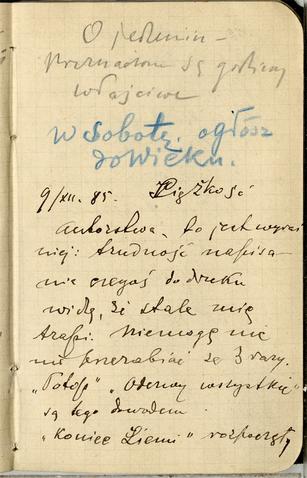 O jedenin –
Przeznaczone są godziny
właściwe
w sobotę. ogłosz
do Wieku.
9/XII. 85. Ciężkość
autorstwa, to jest wyraź
niej: trudność napisa-
nia czegoś do druku
widzę, że stale mię
trapi. Niemogę nic
nie przerabiać ze 3 razy.
„Potop” „Odemnę wszystkie”
są tego dowodem.
„Koniec Ziemi” rozpoczęty